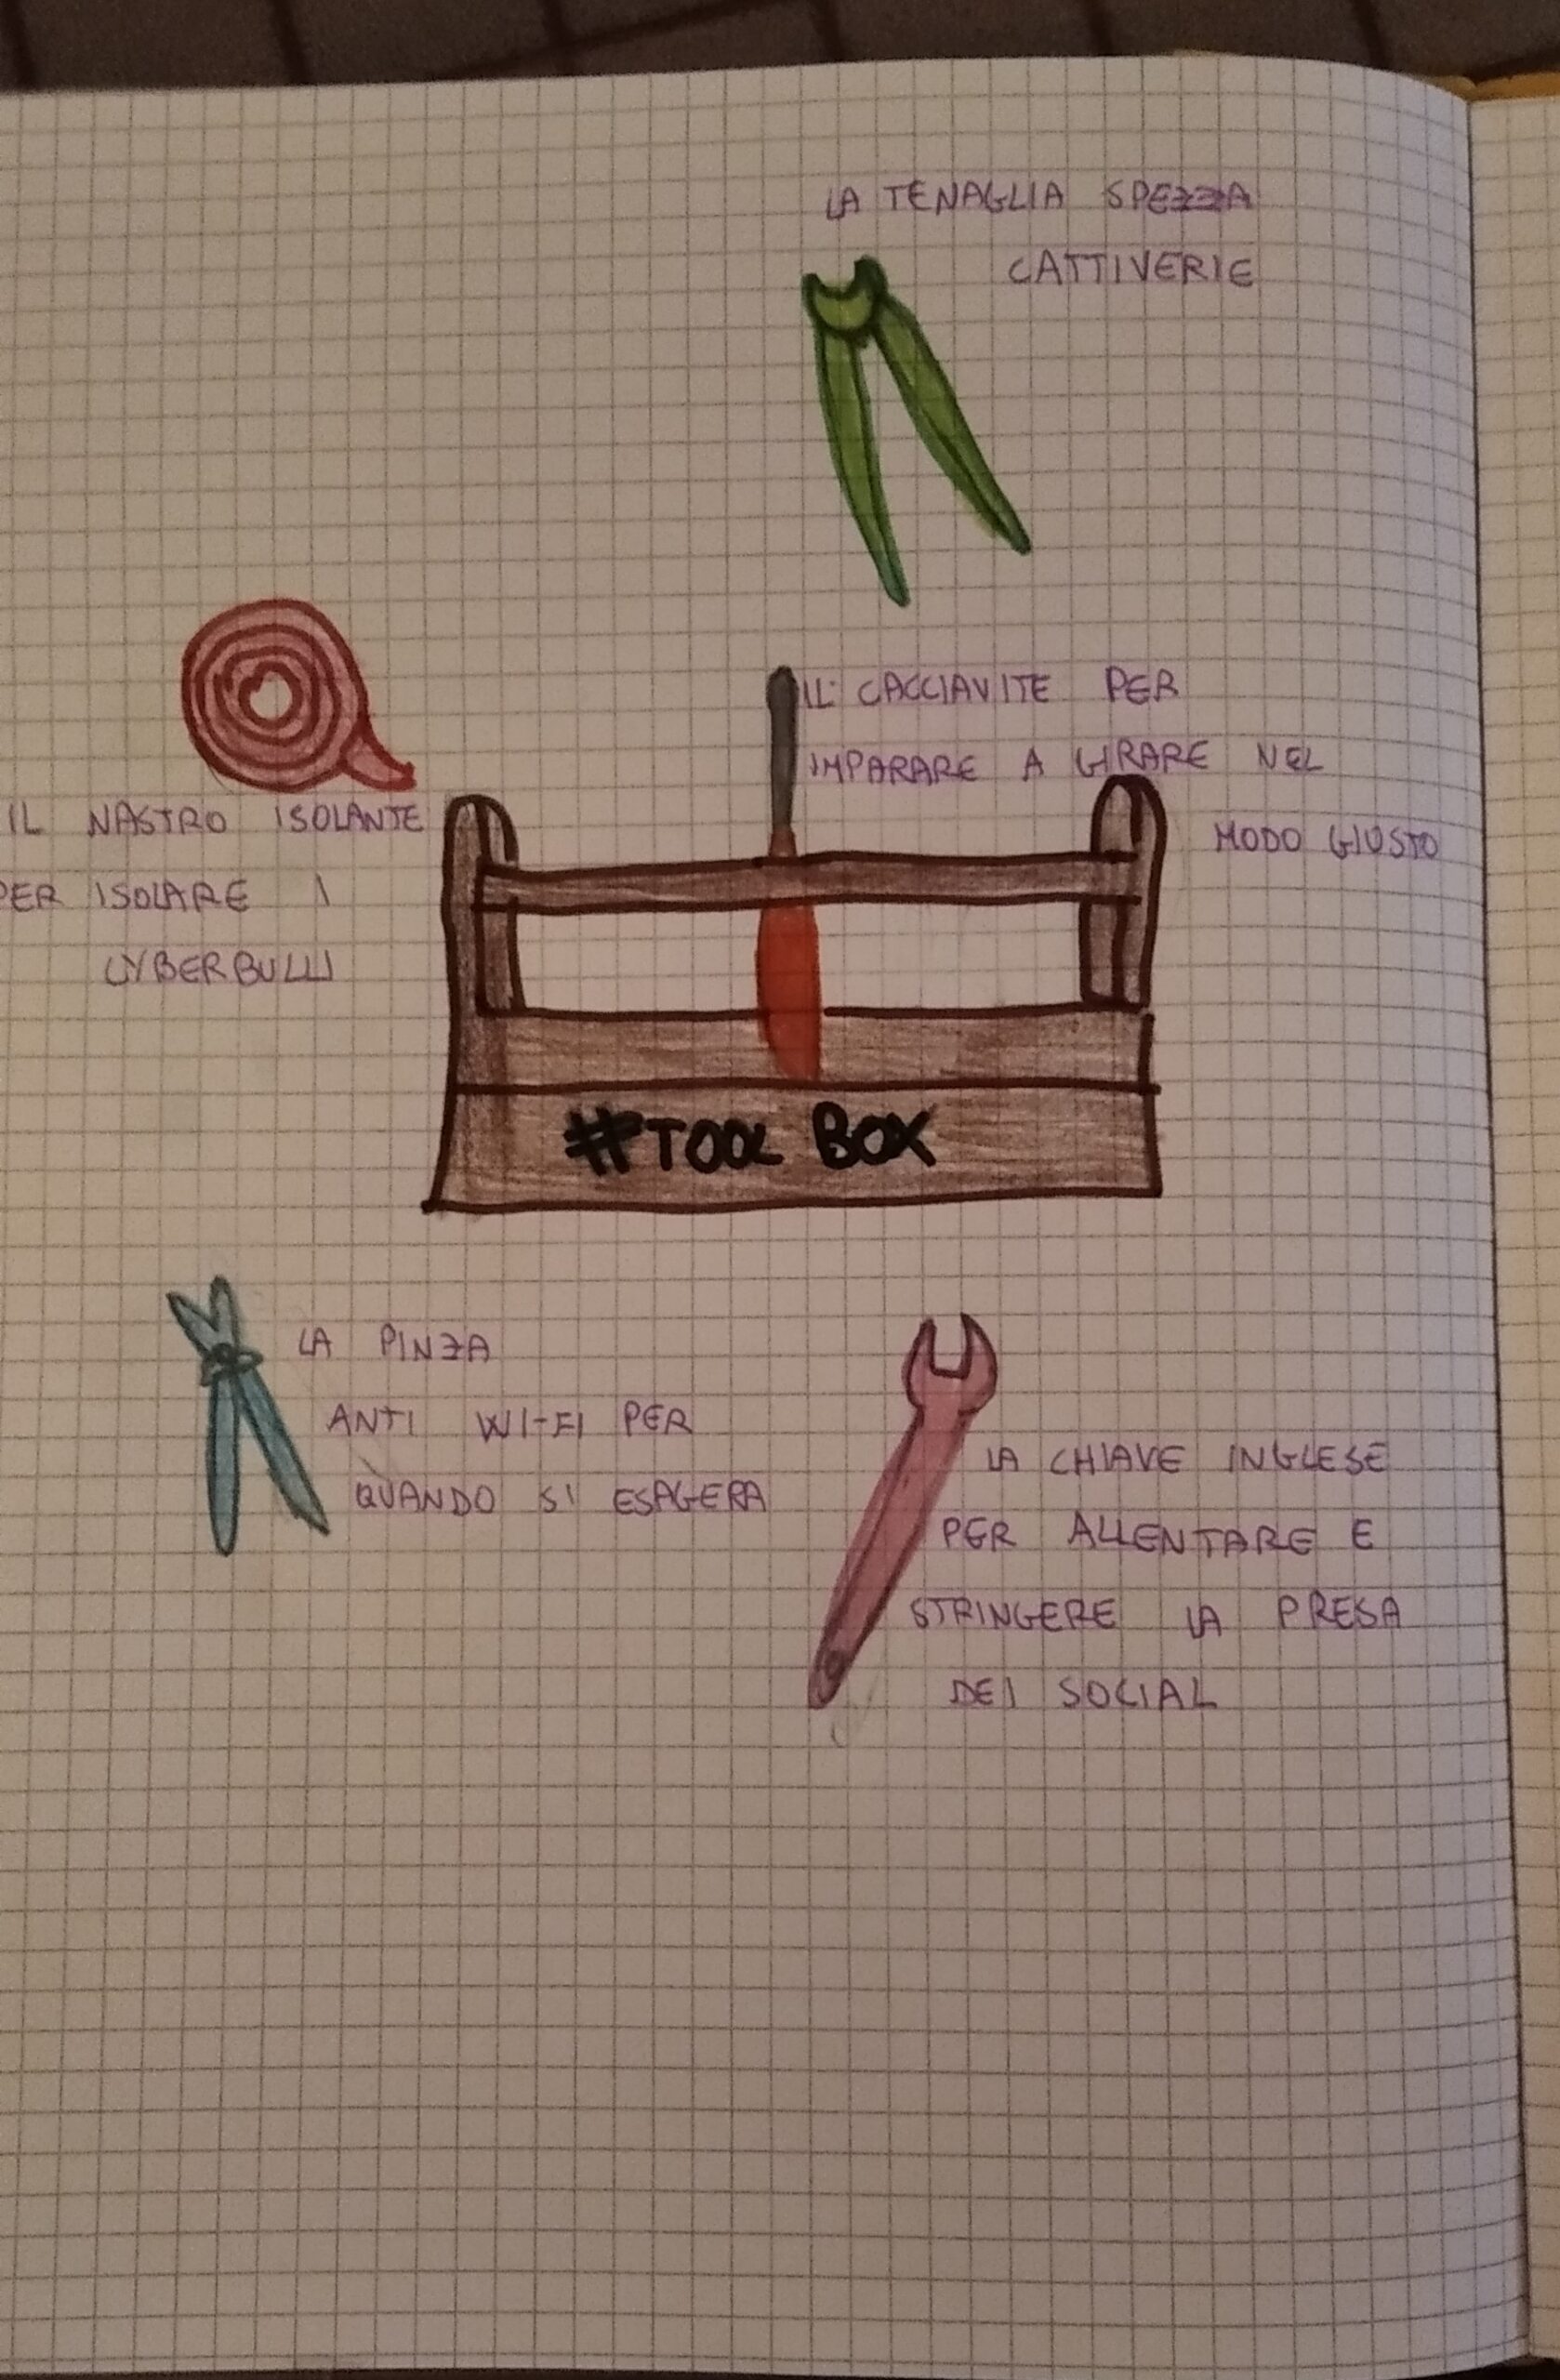 LA TENAGLIA SPEZZA
CATTIVERIE
IL CACCIAVITE PER
IMPARARE A GIRARE NEL
MODO GIUSTO
IL NASTRO ISOLANTE
PER ISOLARE I
CYBERBULLI
#TOOL BOX
LA PINZA
ANTI WI-FI PER
QUANDO SI ESAGERA
LA CHIAVE INGLESE
PER ALLENTARE E
STRINGERE LA PRESA
DEI SOCIAL